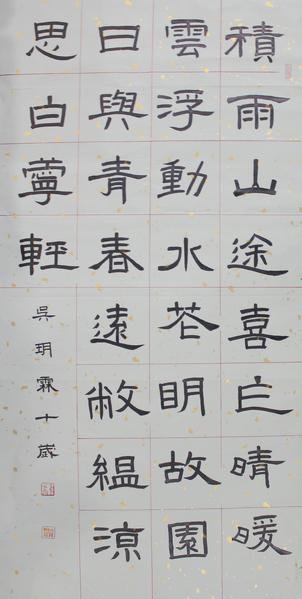 積雨山途喜乍晴暖
雲浮動水花明故園
日與青春遠敝緼涼
思白薴輕
吳玥霖十歲